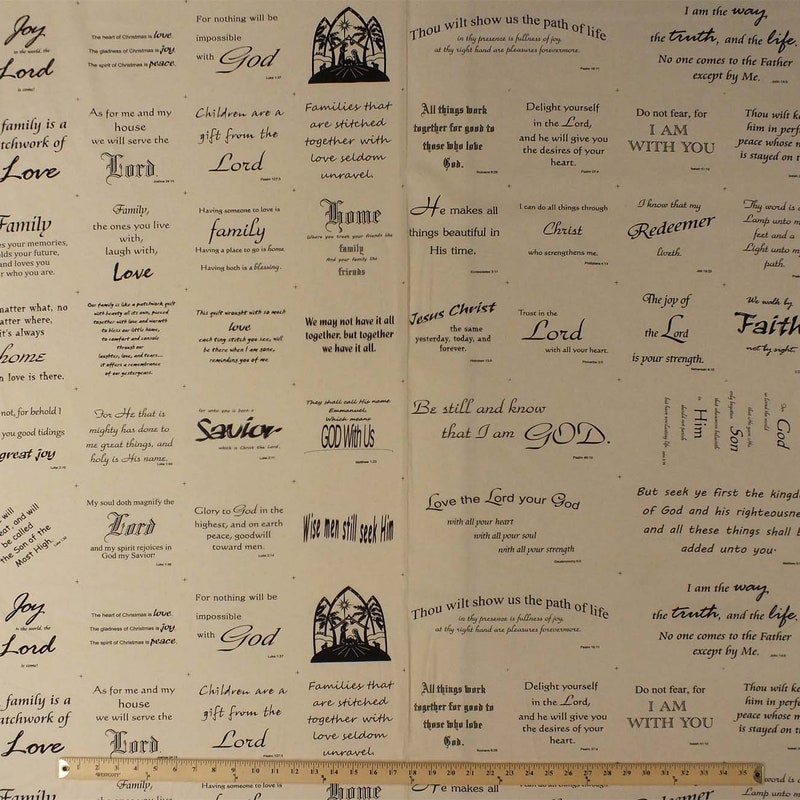 Joy
to the world, the
Lord
is come!
The heart of Christmas is love.
The gladness of Christmas is joy.
The spirit of Christmas is peace.
For nothing will be
impossible
with God
Luke 1:37
Thou wilt show us the path of life
in thy presence is fullness of joy,
at thy right hand are pleasures forevermore.
Psalm 16:11
I am the way,
the truth, and the life.
No one comes to the Father
except by Me.
family is a
patchwork of
Love
As for me and my
house
we will serve the
Lord.
Joshua 24:15
Children are a
gift from the
Lord
Psalm 127:3
Families that
are stitched
together with
love seldom
unravel.
All things work
together for good to
those who love
God.
Romans 8:28
Delight yourself
in the Lord,
and he will give you
the desires of your
heart.
Psalm 37:4
Do not fear, for
I AM
WITH YOU
Thou wilt k
him in perf
peace whose m
is stayed on t
Family
es your memories,
lds your future,
and loves you
r who you are.
Family,
the ones you live
with,
laugh with,
Love
Having someone to love is
family
Having a place to go is home.
Having both is a blessing.
Home
Where you treat your friends like
family
And your family like
friends
He makes all
things beautiful in
His time.
I can do all things through
Christ
who strengthens me.
I know that my
Redeemer
liveth.
Thy word is a
Lamp unto m
feet and a
Light unto m
path.
matter what, no
matter where,
it's always
home
n love is there.
Our family is like a patchwork quilt
with beauty all its own, pieced
together with love and warmth
to bless our little home,
to comfort and console
through our
laughter, love, and tears...
it offers a remembrance
of our yesteryears.
This quilt wrought with so much
love
each tiny stitch you see, will
be there when I am gone,
reminding you of me.
We may not have it all
together, but together
we have it all.
Jesus Christ
the same
yesterday, today, and
forever.
Hebrews 13:8
Trust in the
Lord
with all your heart.
Proverbs 3:5
The joy of
the Lord
is your strength.
We walk by
Faith
not by sight.
not, for behold I
you good tidings
great joy
Luke 2:10
For He that is
mighty has done to
me great things, and
holy is His name.
Luke 1:49
for unto you is born a
Savior
which is Christ the Lord.
Luke 2:11
They shall call His name
Emmanuel,
Which means
GOD With Us
Matthew 1:23
Be still and know
that I am GOD.
Psalm 46:10
God
Son
Him
will
eat, and will
be called
the Son of the
Most High.
My soul doth magnify the
Lord
and my spirit rejoices in
God my Savior!
Luke 1:46
Glory to God in the
highest, and on earth
peace, goodwill
toward men.
Luke 2:14
Wise men still seek Him
Love the Lord your God
with all your heart
with all your soul
with all your strength
But seek ye first the kingd
of God and his righteousne
and all these things shall b
added unto you.
Joy
to the world, the
Lord
is come!
The heart of Christmas is love.
The gladness of Christmas is joy.
The spirit of Christmas is peace.
For nothing will be
impossible
with God
Luke 1:37
Thou wilt show us the path of life
in thy presence is fullness of joy,
at thy right hand are pleasures forevermore.
Psalm 16:11
I am the way,
the truth, and the life.
No one comes to the Father
except by Me.
family is a
patchwork of
Love
As for me and my
house
we will serve the
Lord.
Children are a
gift from the
Lord
Psalm 127:3
Families that
are stitched
together with
love seldom
unravel.
All things work
together for good to
those who love
God.
Romans 8:28
Delight yourself
in the Lord,
and he will give you
the desires of your
heart.
Psalm 37:4
Do not fear, for
I AM
WITH YOU
Thou wilt k
him in perf
peace whose m
is stayed on t
1 2 3 4 5 6 7 8 9 10 11 12 13 14 15 16 17 18 19 20 21 22 23 24 25 26 27 28 29 30 31 32 33 34 35
WESTCOTT
Family
Family,
Home
He makes all
I can do all things through
I know that my
Redeemer
word is a
Lamp unto m